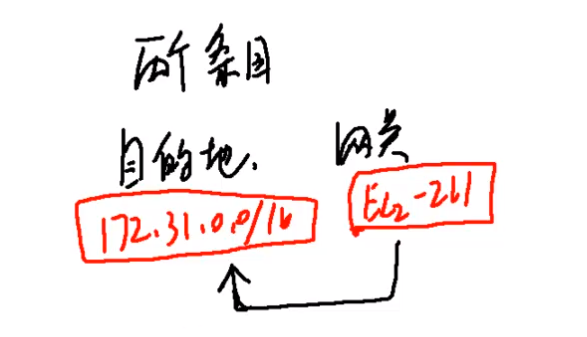 两个条目
目的地. 网关
172.31.0.0/16 EC2-2b1